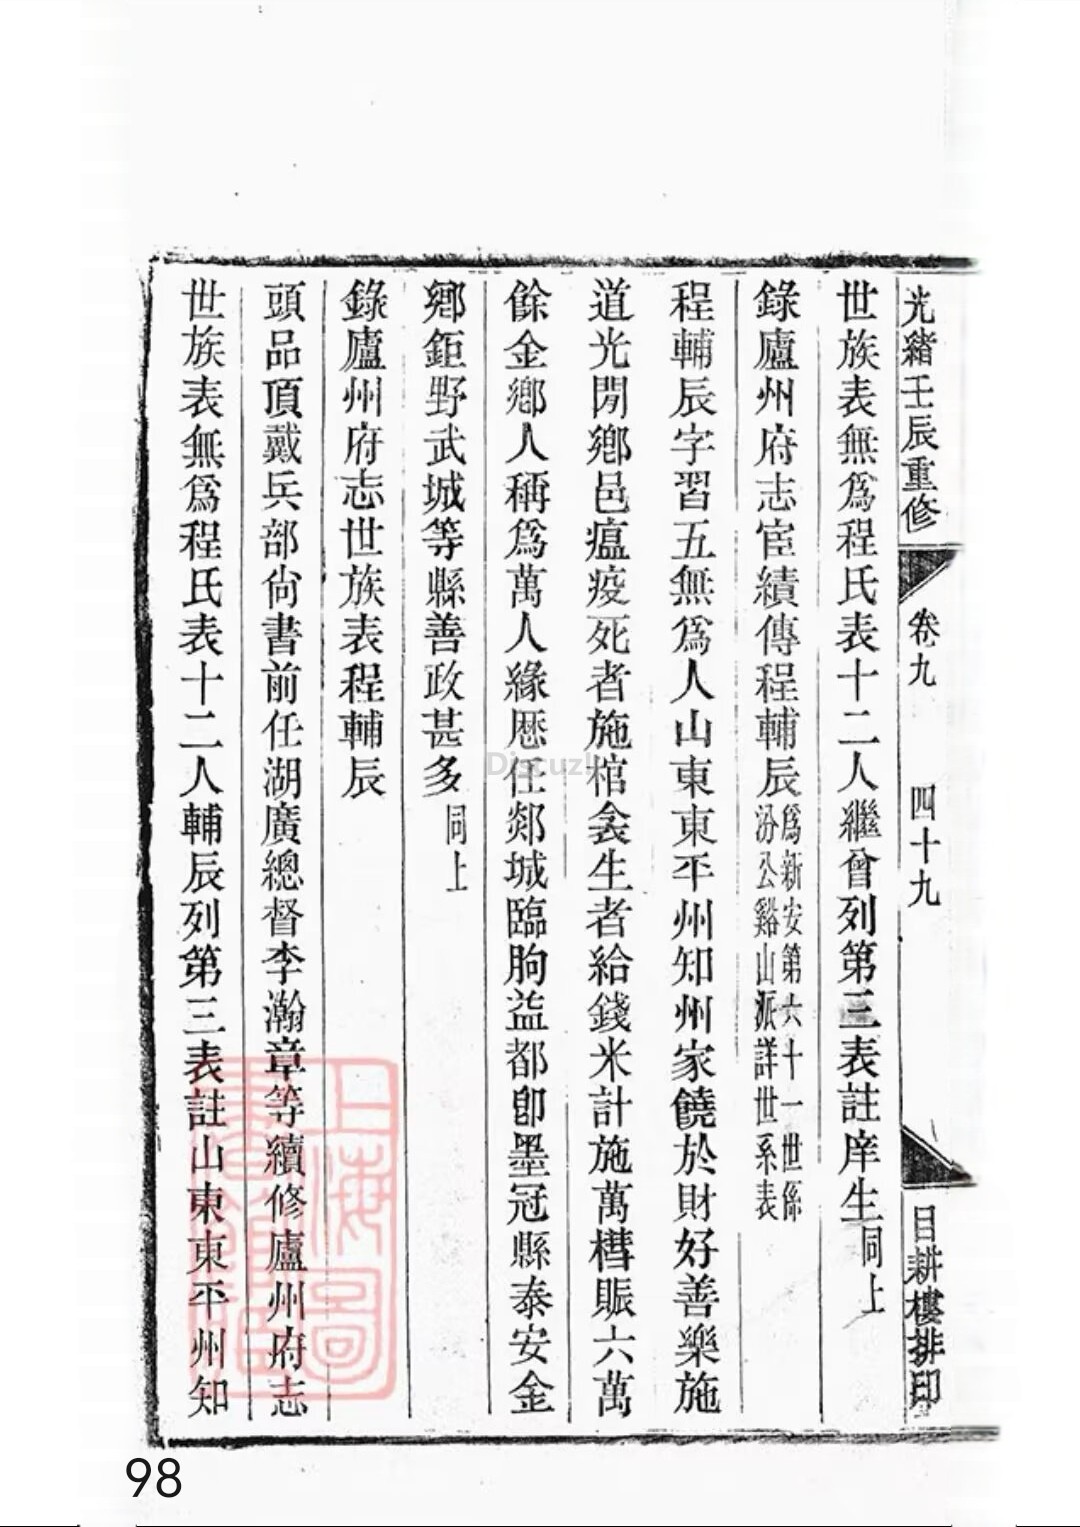 光緒壬辰重修 卷九 四十九 目耕樓排印
世族表無爲程氏表十二人繼曾列第三表註庠生同上
錄廬州府志宦績傳程輔辰爲新安第六十一世係汾公谿山派詳世系表
程輔辰字習五無爲人山東東平州知州家饒於財好善樂施
道光閒鄉邑瘟疫死者施棺衾生者給錢米計施萬槥賑六萬
餘金鄉人稱爲萬人緣歷任郯城臨朐益都卽墨冠縣泰安金
鄉鉅野武城等縣善政甚多同上
錄廬州府志世族表程輔辰
頭品頂戴兵部尙書前任湖廣總督李瀚章等續修廬州府志
世族表無爲程氏表十二人輔辰列第三表註山東東平州知
上海圖書館藏
Discuz!
98